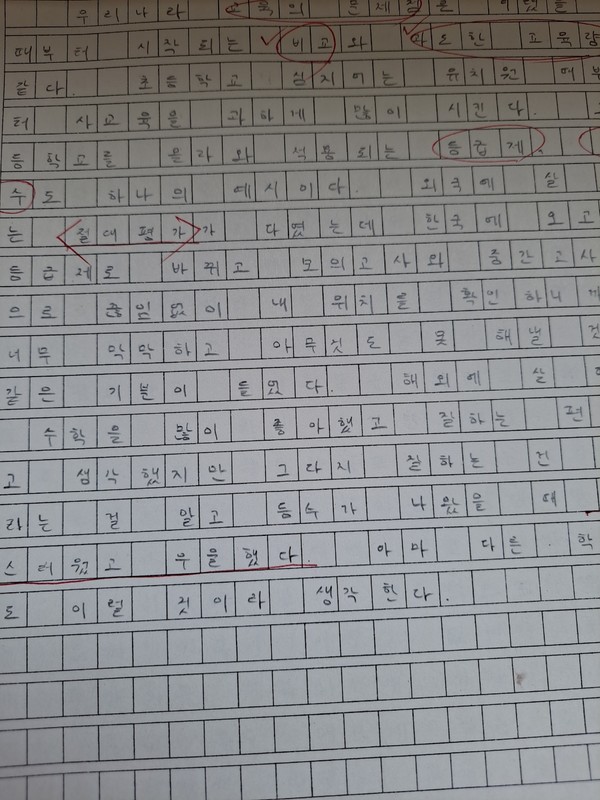 우리나라 교육의 문제점은
때부터 시작되는 비교와 과도한 교육량
같다. 초등학교 심지어는 유치원 때부
터 사교육을 과하게 많이 시킨다.
등학교를 올라와 적용되는 등급제,
수도 하나의 예시이다. 외국에 살
는 절대평가가 다였는데 한국에 오고
등급제로 바뀌고 모의고사와 중간고사
으로 끊임없이 내 위치를 확인하니
너무 막막하고 아무것도 못 해낼 것
같은 기분이 들었다. 해외에 살
수학을 많이 좋아했고 잘하는 편
고 생각했지만 그다지 잘하는 건
라는 걸 알고 등수가 나왔을 때
스러웠고 우울했다. 아마 다른 학
도 이럴 것이라 생각한다.